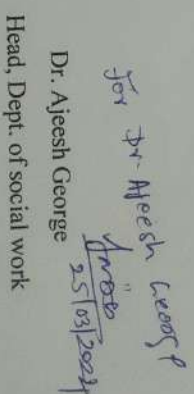 for Dr. Ajeesh George
25/03/2024
Dr. Ajeesh George
Head, Dept. of social work